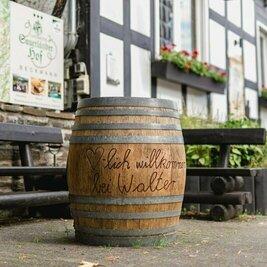 Sauerländer
Hof
♡lich willkommen
bei Walter